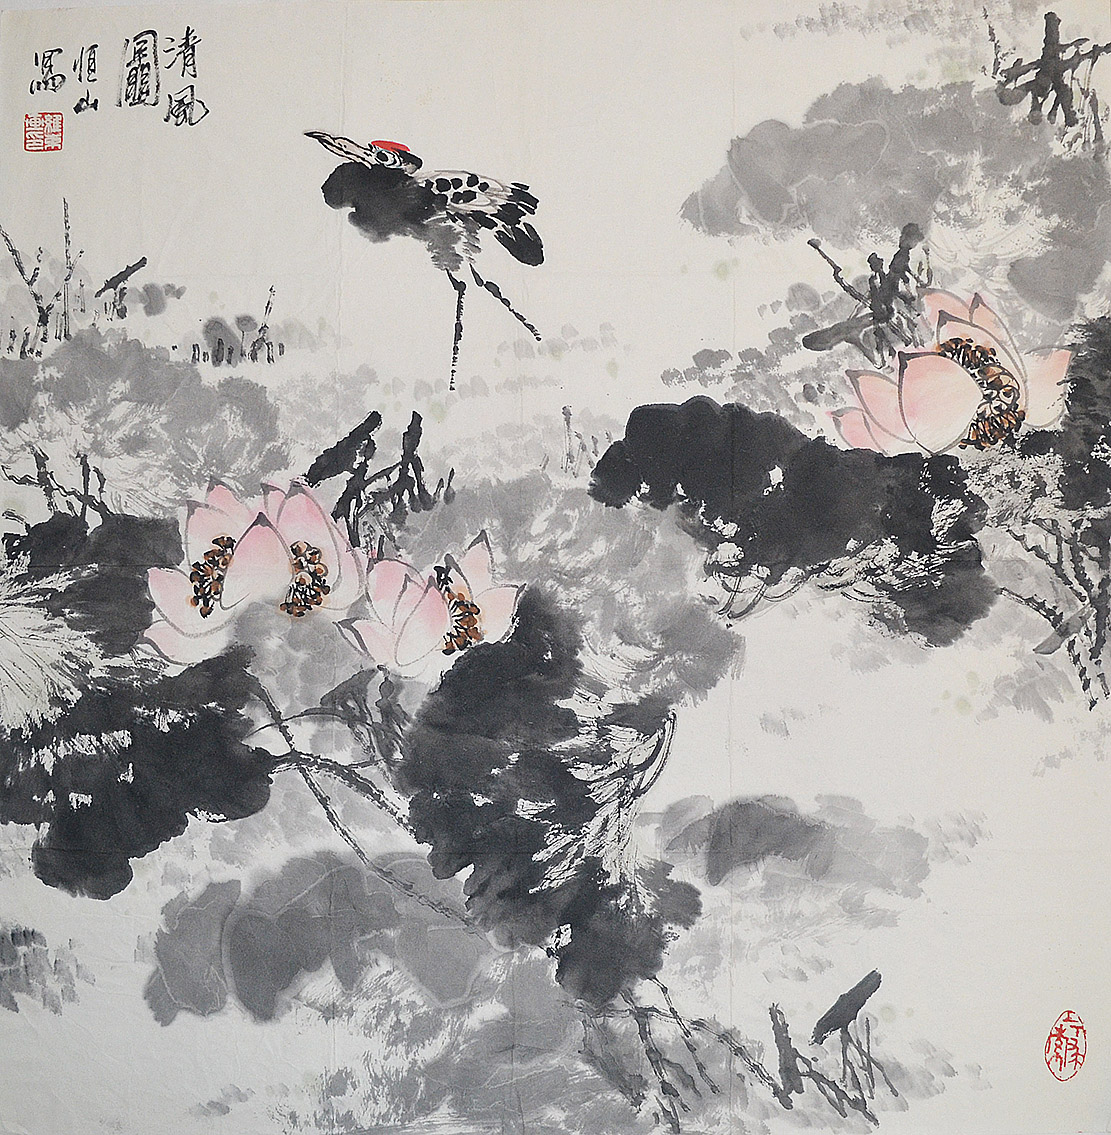 清風
圖
恒山
寫